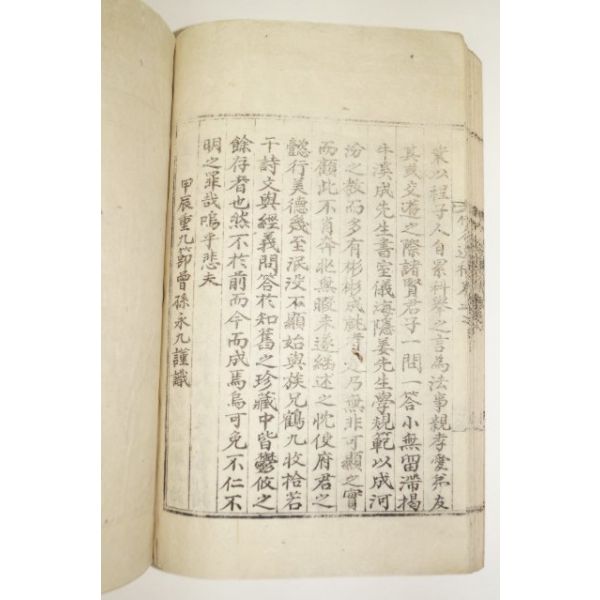 業以程子人自累科舉之言爲法事親孝愛兄友
其或交遊之際諸賢君子一問一答小無留滯揭
牛溪成先生書室儀海隱姜先生學規範以成河
汾之教而多有彬彬成就者此乃無非可顯之實
而顧此不肖奔北無暇未遂繼述之忱使府君之
懿行美德幾至泯没不顯始與族兄鶴九收拾若
干詩文與經義問答於知舊之珍藏中皆鬱攸之
餘存者也然不於前而今而成焉烏可免不仁不
明之罪哉嗚乎悲夫
甲辰重九節曾孫永九謹識